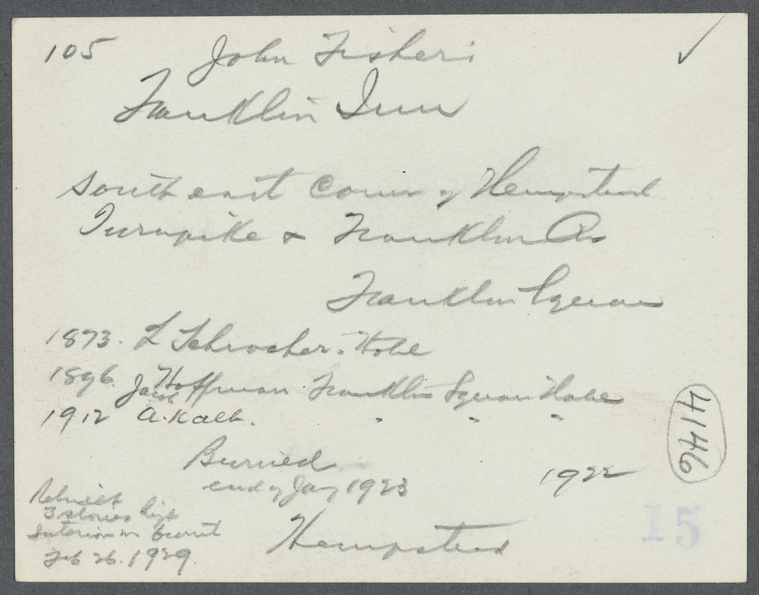 105 John Fisher's ✓
Franklin Inn
South east Corner of Hempstead
Turnpike & Franklin Av
Franklin Square
1873. L Schroeher. Hotel
1896. Jacob Hoffman Franklin Square Hotel
1912 A. Kalb. " " "
Burned 1922
end of Jany 1923
Rebuilt
3 stories high
Interior burnt
Feb 26. 1929.
Hempstead
4146
15